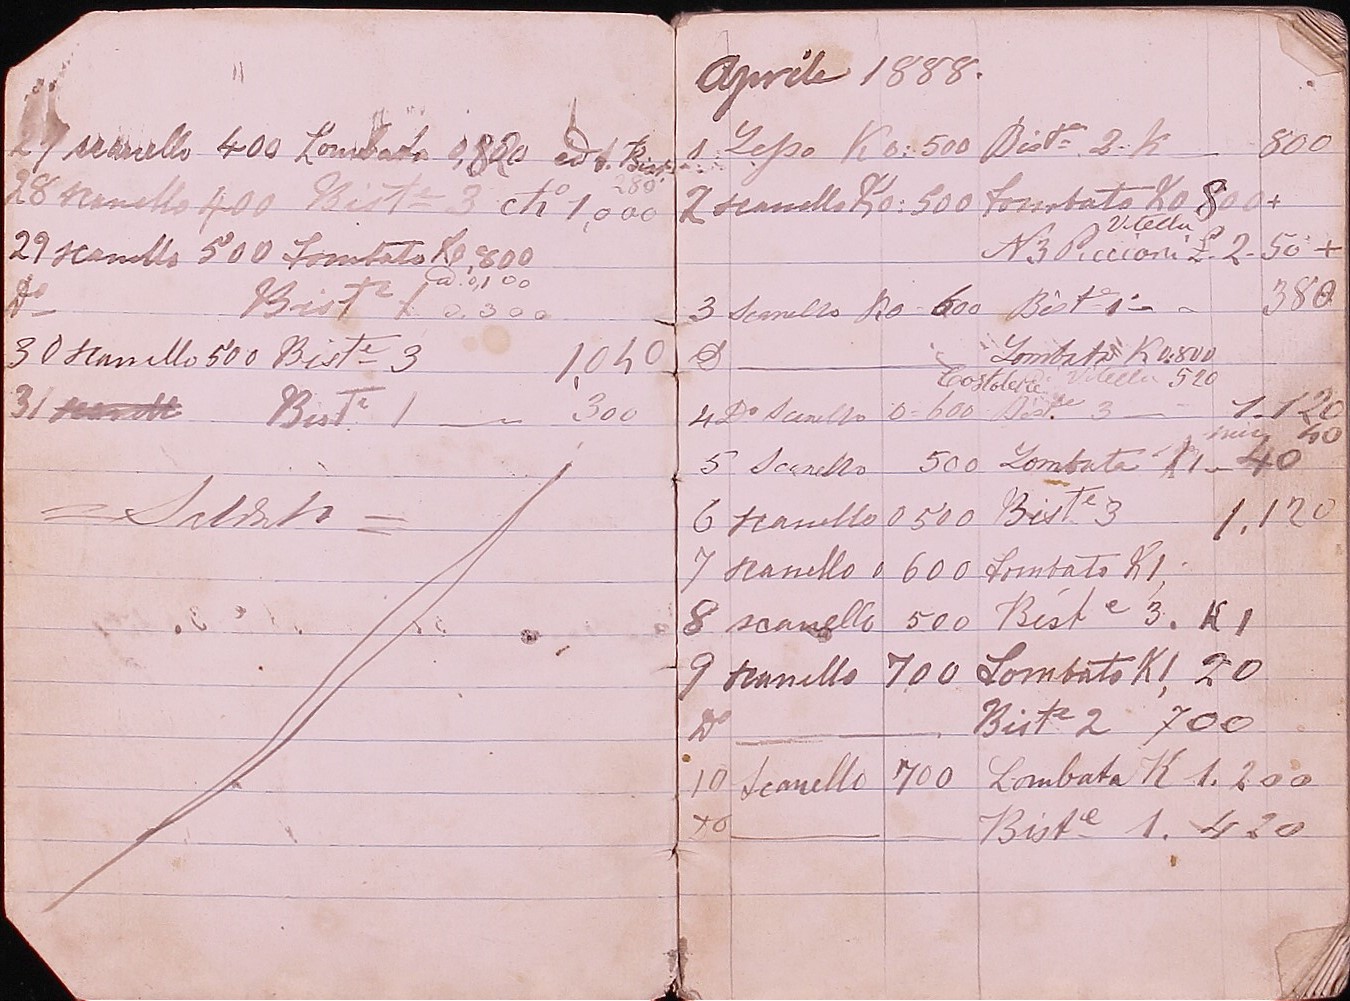 27 scanello 400 Lombata 0,820 ed 1. Bist
280
28 scanello 400 Bist.e 3 ch° 1,000
29 scanello 500 Lombato K0,800
D° Bist.e 1 0,300
30 scanello 500 Bist.e 3 1,040
31 Bist.e 1 300
= Saldato =
Aprile 1888.
1 Lesso K 0:500 Bist.e 2. K 800
2 scanello K0:500 Lombato K0 800+
Vitella
N 3 Piccioni £. 2-50 +
3 Scanello K0-600 Bist.e 1- - 380
D Lombata K 0.800
Costolette di Vitella 520
4 D° Scanello 0-600 Bist.e 3 1.120
40
5 Scanello 500 Lombata K 1- 40
6 scanello 0 500 Bist.e 3 1,120
7 scanello 0 600 Lombato K1,
8 scanello 500 Bist.e 3. K 1
9 scanello 700 Lombato K1, 20
D° Bist.e 2 700
10 Scanello 700 Lombata K 1.200
D° Bist.e 1. 420